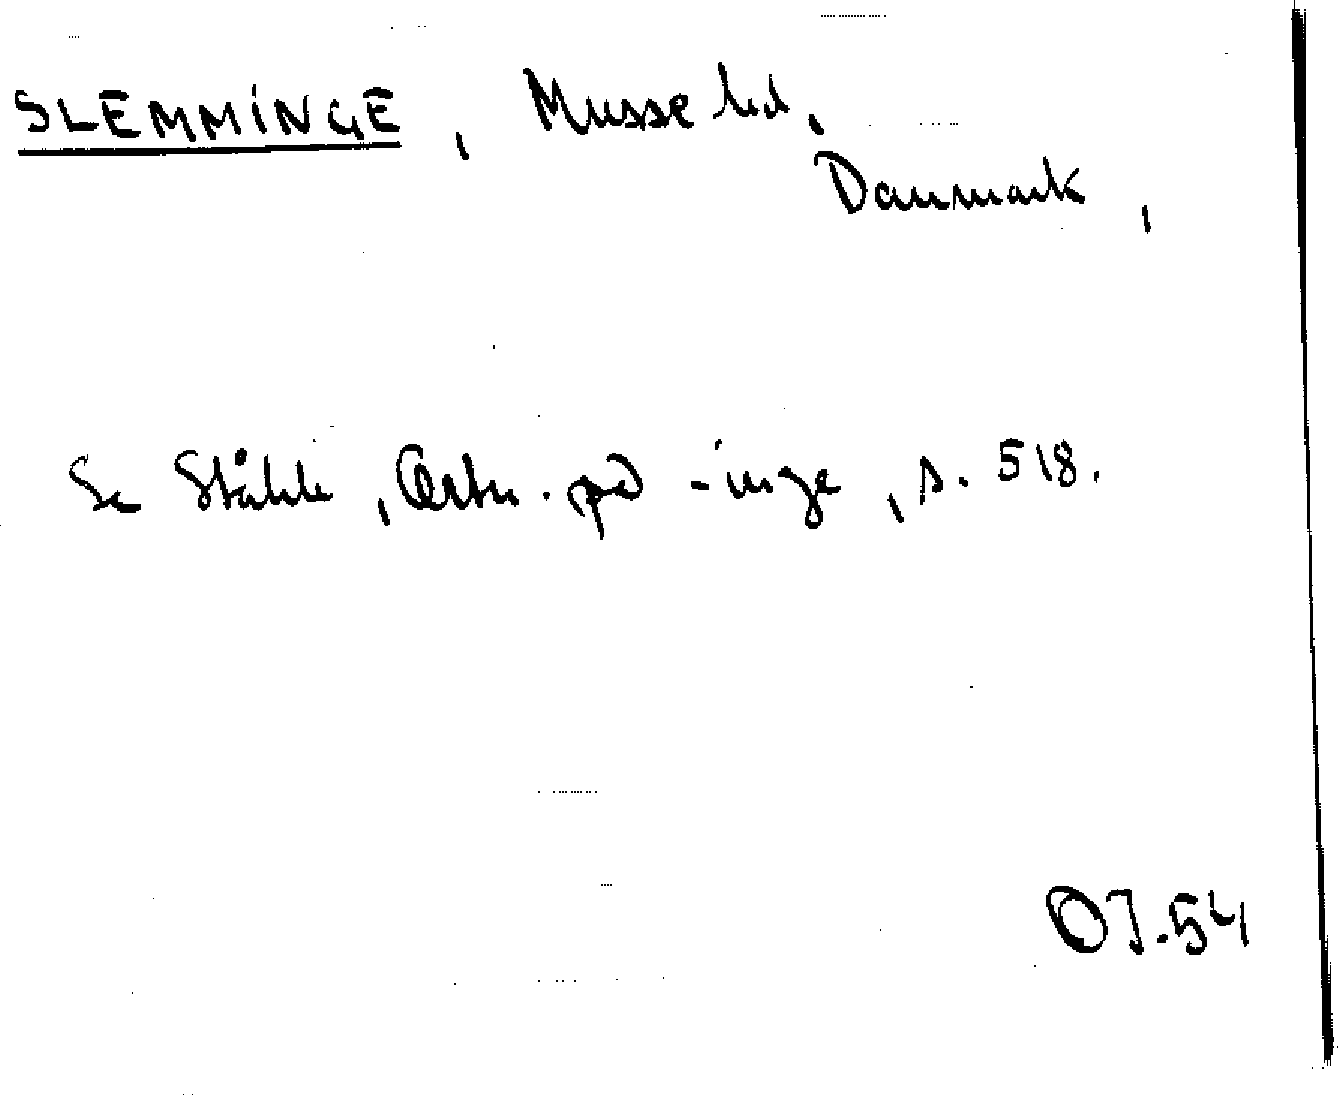 SLEMMINGE, Musse hd,
Danmark,
Se Ståhle, Ortn. på -inge, s. 518.
OJ.54